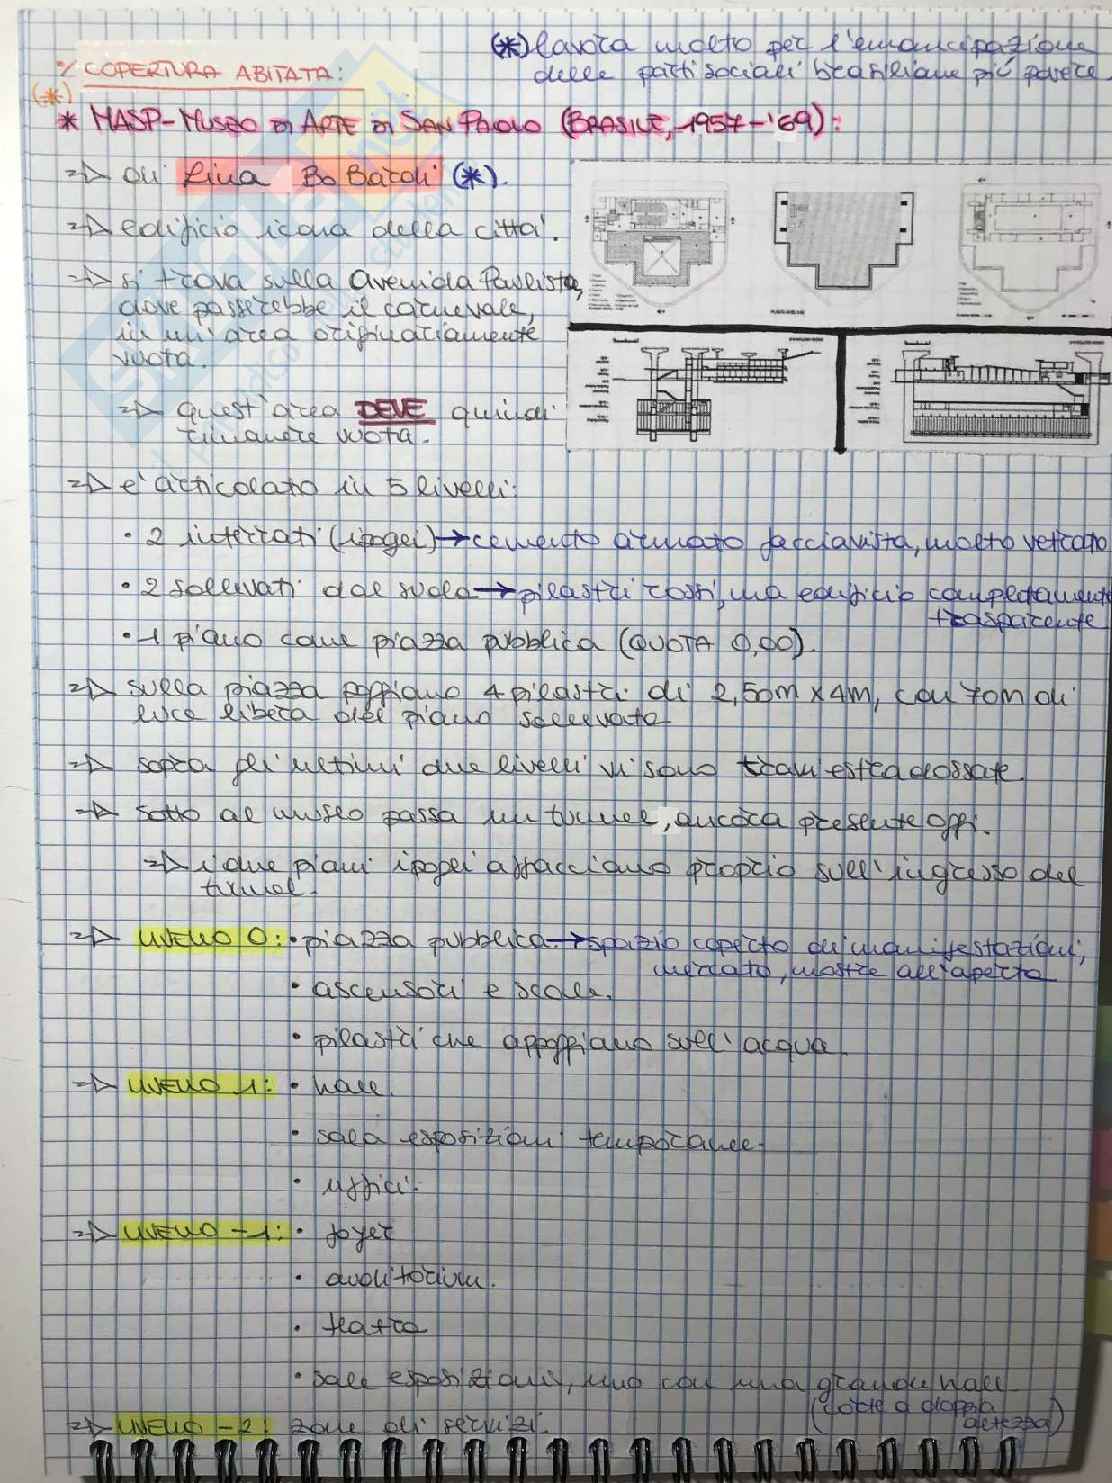 (*) lavora molto per l'emancipazione
delle parti sociali brasiliane più povere
% COPERTURA ABITATA:
(*)
* MASP-MUSEO DI ARTE DI SAN PAOLO (BRASILE, 1957-'69):
=> di Lina Bo Bardi (*).
=> edificio icona della città.
=> si trova sulla Avenida Paulista,
dove passerebbe il carnevale,
in un'area originariamente
vuota.
=> quest'area DEVE quindi
rimanere vuota.
=> e' articolato in 5 livelli:
• 2 interrati (ipogei) → cemento armato facciavista, molto vetrato
• 2 sollevati dal suolo → pilastri rossi, ma edificio completamente
trasparente
• 1 piano come piazza pubblica (QUOTA 0,00).
=> sulla piazza poggiano 4 pilastri di 2,50m x 4m, con 70m di
luce libera del piano sollevato
=> sopra gli ultimi due livelli vi sono travi estradossate.
=> sotto al museo passa un tunnel, ancora presente oggi.
=> i due piani ipogei affacciano proprio sull'ingresso del
tunnel.
=> LIVELLO 0: • piazza pubblica → spazio coperto di manifestazioni,
mercato, mostre all'aperto
• ascensori e scale.
• pilastri che appoggiano sull'acqua
=> LIVELLO 1: • hall.
• sala esposizioni temporanee.
• uffici.
=> LIVELLO -1: • foyer
• auditorium.
• teatro
• sale esposizioni, uno con una grande hall
(corte a doppia
altezza)
=> LIVELLO -2: zone di servizi.